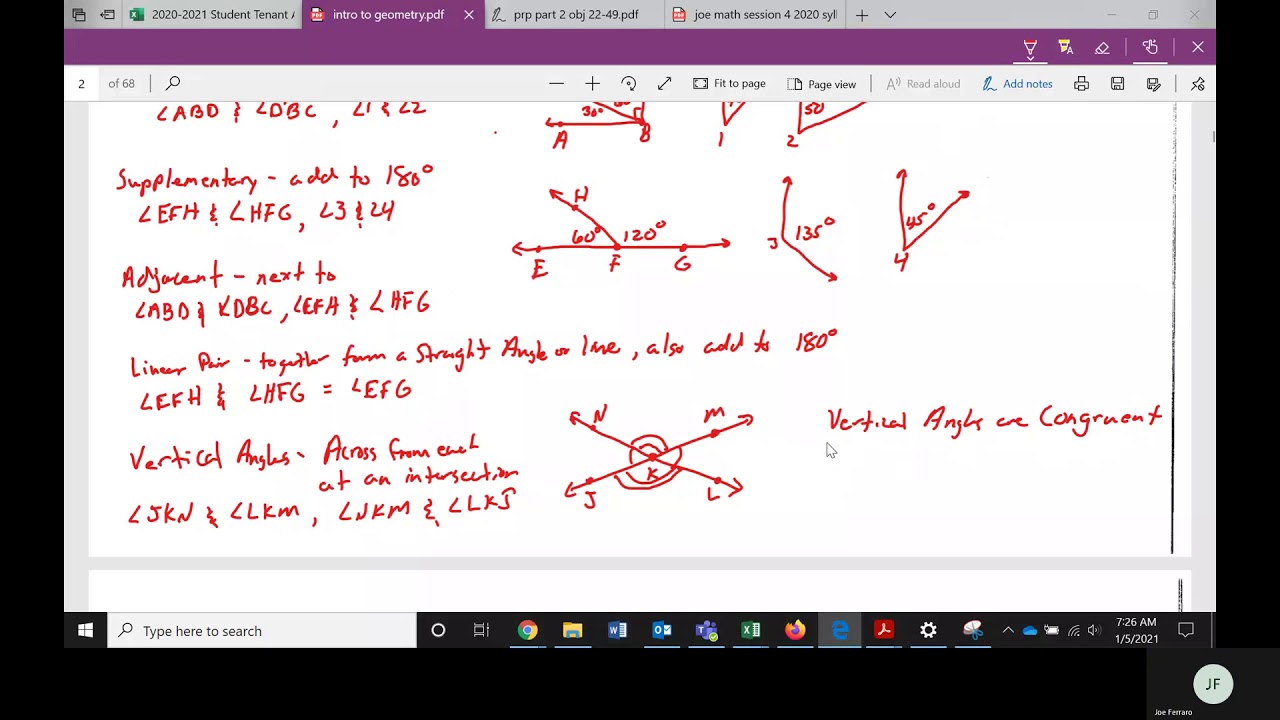 2020-2021 Student Tenant A
intro to geometry.pdf
prp part 2 obj 22-49.pdf
joe math session 4 2020 syll
2 of 68
Fit to page
Page view
Read aloud
Add notes
∠ABD & ∠DBC, ∠1 & ∠2
30°
A
B
1
50
2
Supplementary - add to 180°
∠EFH & ∠HFG, ∠3 & ∠4
H
60° 120°
E F G
3 135°
45°
4
Adjacent - next to
∠ABD & ∠DBC, ∠EFH & ∠HFG
Linear Pair - together form a Straight Angle or line, also add to 180°
∠EFH & ∠HFG = ∠EFG
Vertical Angles - Across from each
at an intersection
∠JKN & ∠LKM, ∠NKM & ∠LKJ
N M
K
J L
Vertical Angles are Congruent
Type here to search
7:26 AM
1/5/2021
JF
Joe Ferraro